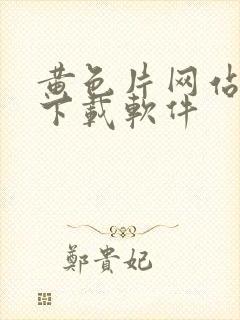 黄色片网站
下載軟件
鄭貴妃